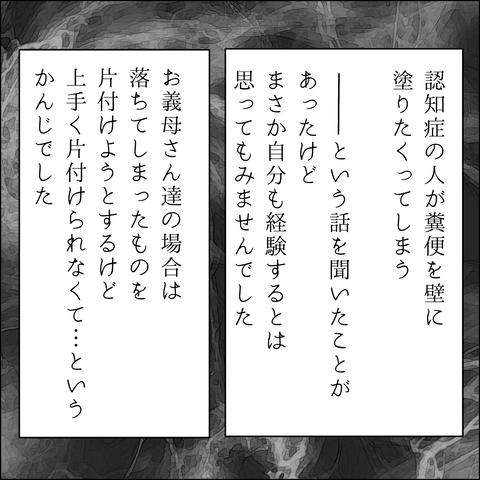 認知症の人が糞便を壁に
塗りたくってしまう
――という話を聞いたことが
あったけど
まさか自分も経験するとは
思ってもみませんでした
お義母さん達の場合は
落ちてしまったものを
片付けようとするけど
上手く片付けられなくて…という
かんじでした